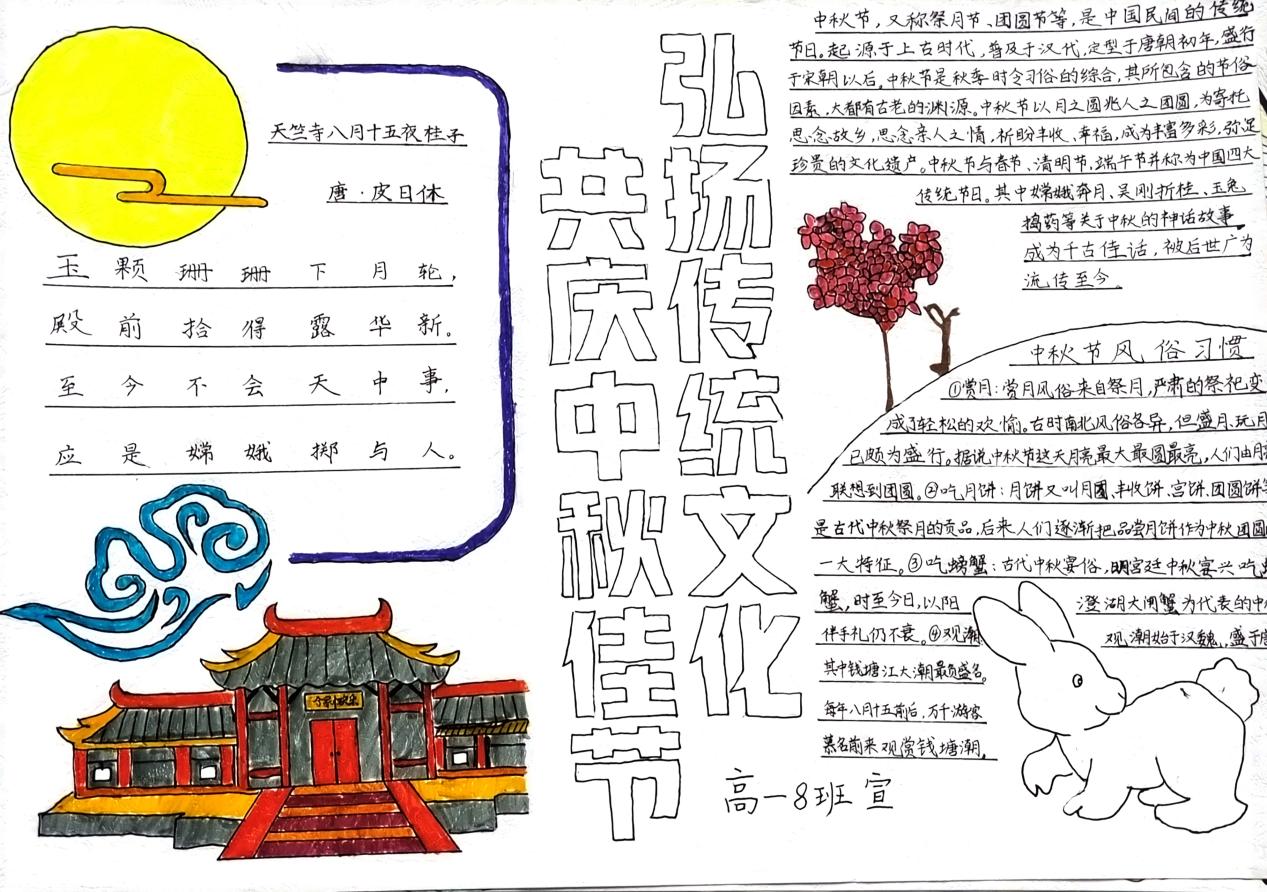 天竺寺八月十五夜桂子
唐·皮日休
玉颗珊珊下月轮，
殿前拾得露华新。
至今不会天中事，
应是嫦娥掷与人。
弘扬传统文化
共庆中秋佳节
高一8班 宣
中秋节，又称祭月节、团圆节等，是中国民间的传统
节日。起源于上古时代，普及于汉代，定型于唐朝初年，盛行
于宋朝以后。中秋节是秋季时令习俗的综合，其所包含的节俗
因素，大都有古老的渊源。中秋节以月之圆兆人之团圆，为寄托
思念故乡，思念亲人之情，祈盼丰收、幸福，成为丰富多彩，弥足
珍贵的文化遗产。中秋节与春节、清明节，端午节并称为中国四大
传统节日。其中嫦娥奔月、吴刚折桂、玉兔
捣药等关于中秋的神话故事
成为千古佳话，被后世广为
流传至今。
中秋节风俗习惯
①赏月：赏月风俗来自祭月，严肃的祭祀变
成了轻松的欢愉。古时南北风俗各异，但盛月、玩月
已颇为盛行。据说中秋节这天月亮最大最圆最亮，人们由月亮
联想到团圆。②吃月饼：月饼又叫月团、丰收饼、宫饼、团圆饼等
是古代中秋祭月的贡品，后来人们逐渐把品尝月饼作为中秋团圆的
一大特征。③吃螃蟹：古代中秋宴俗，明宫廷中秋宴兴吃螃
蟹，时至今日，以阳 澄湖大闸蟹为代表的中
伴手礼仍不衰。④观潮 观潮始于汉魏，盛于唐
其中钱塘江大潮最负盛名。
每年八月十五前后，万千游客
慕名前来观赏钱塘潮，